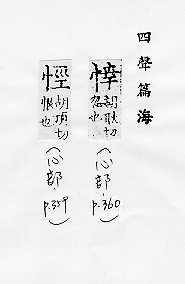 四聲篇海
悻 胡耿切
也
(心部 p.360)
切
恨也
(心部 p.359)